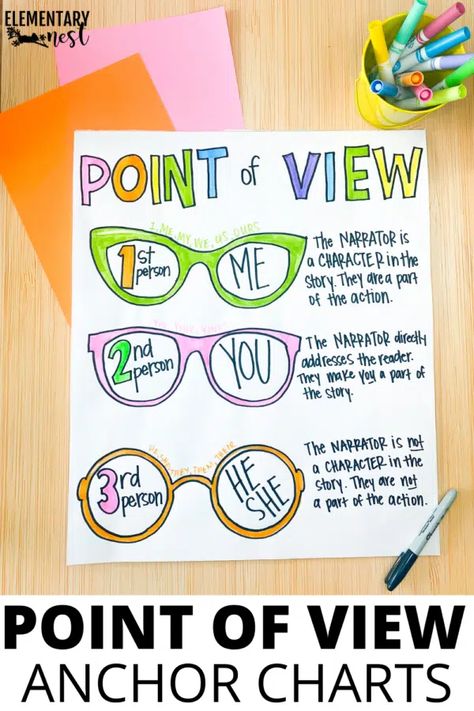 ELEMENTARY
nest
POINT of VIEW
I, ME, MY, WE, US, OURS
1st
person
ME
The NARRATOR is
a CHARACTER in the
story. They are a part
of the action.
YOU, YOUR, YOURS
2nd
person
YOU
The NARRATOR directly
addresses the reader.
They make you a part of
the story.
THEY, THEM, THEIR
3rd
person
HE
SHE
The NARRATOR is not
a CHARACTER in the
story. They are not
a part of the action.
POINT OF VIEW
ANCHOR CHARTS